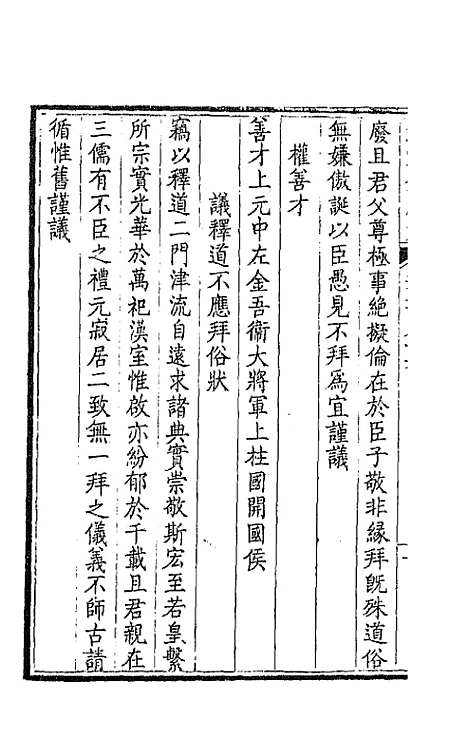 廢且君父尊極事絶擬倫在於臣子敬非縁拜旣殊道俗
無嫌傲誕以臣愚見不拜爲宜謹議
權善才
善才上元中左金吾衞大將軍上柱國開國侯
議釋道不應拜俗狀
竊以釋道二門津流自遠求諸典實崇敬斯宏至若皇繫
所宗實光華於萬祀漢室惟啟亦紛郁於千載且君親在
三儒有不臣之禮元寂居二致無一拜之儀義不師古請
循惟舊謹議